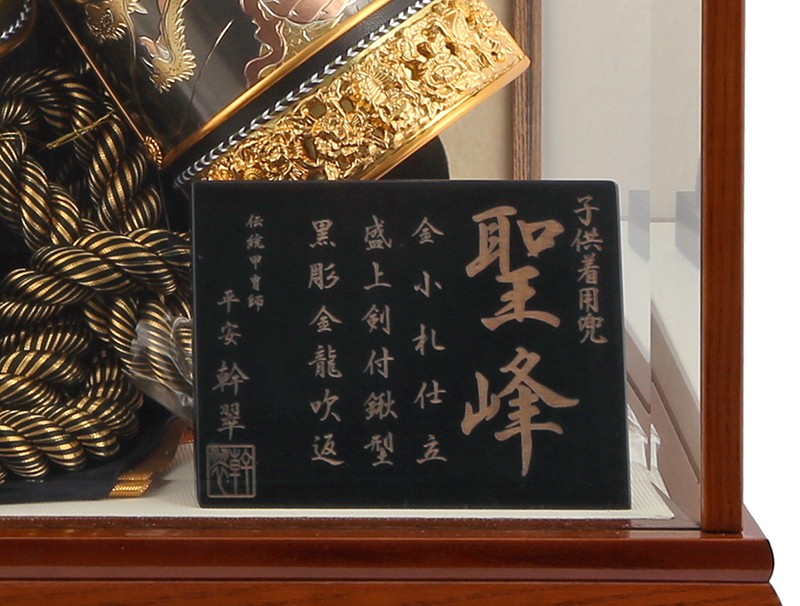 子供着用兜
聖峰
金小札仕立
盛上剣付鍬型
黒彫金龍吹返
伝統甲冑師
平安幹翠